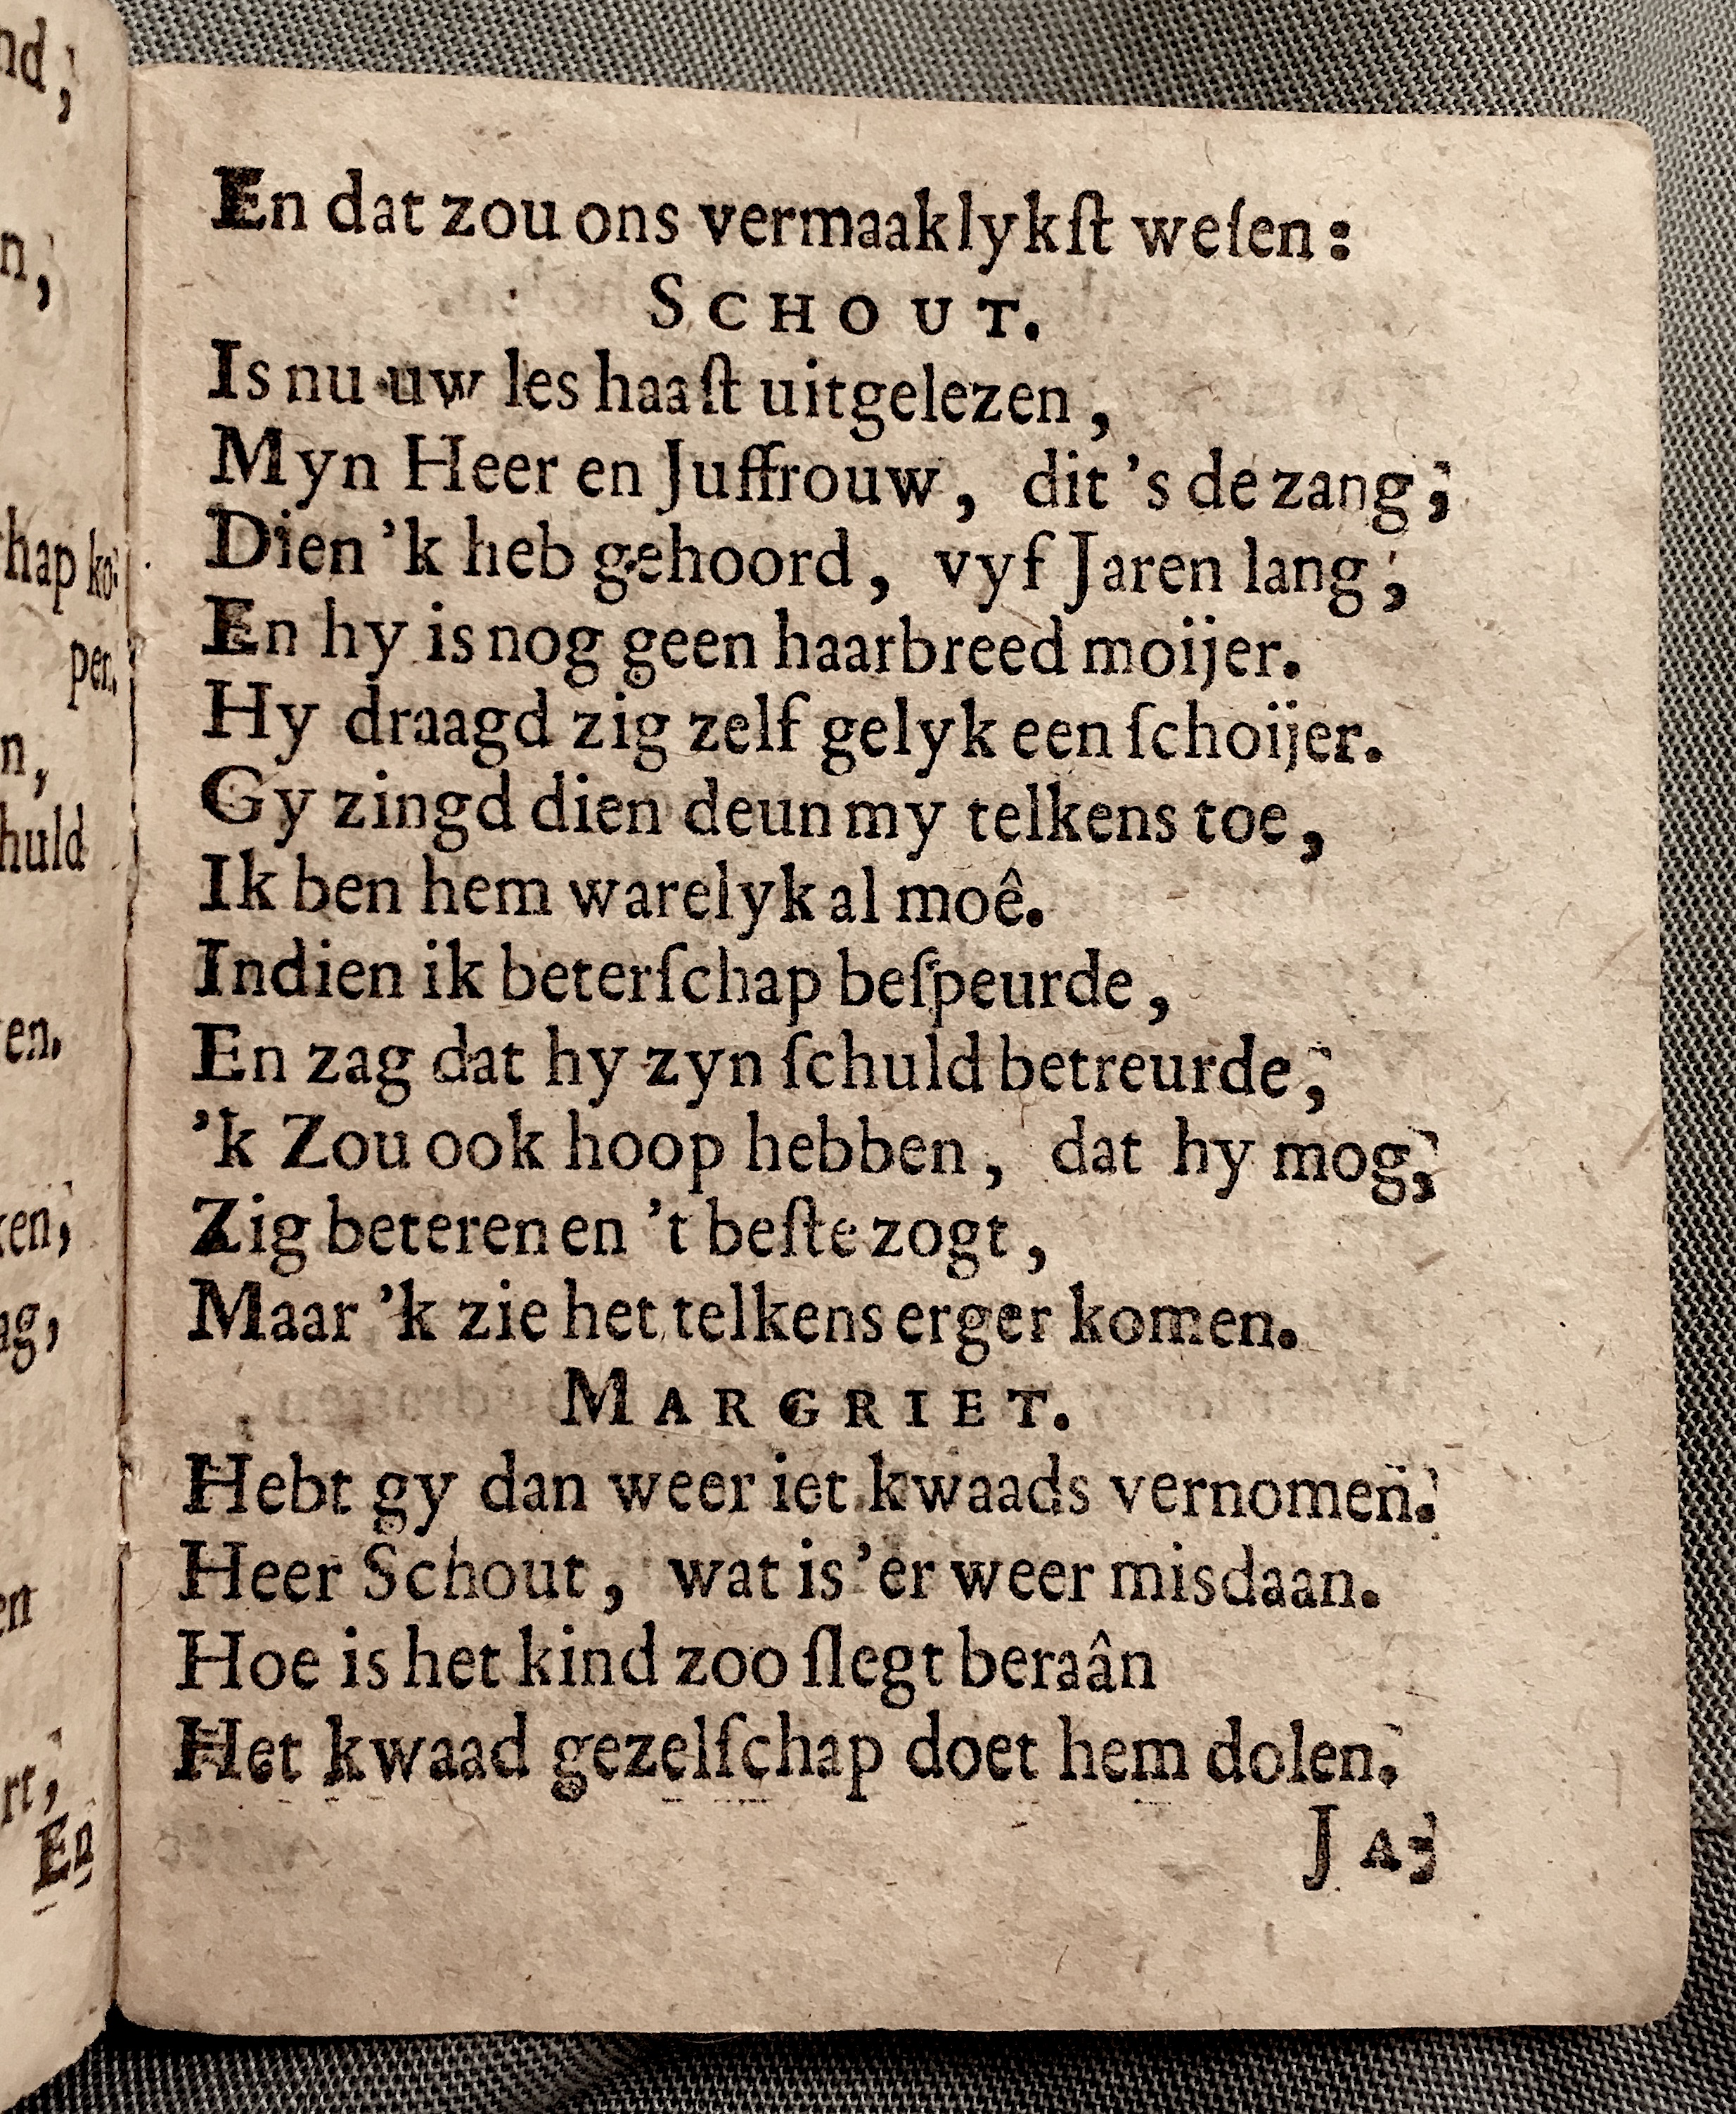 En dat zou ons vermaaklykſt weſen:
SCHOUT.
Is nu uw les haaſt uitgelezen,
Myn Heer en Juffrouw, dit 's de zang;
Dien 'k heb gehoord, vyf Jaren lang;
En hy is nog geen haarbreed moijer.
Hy draagd zig zelf gelyk een ſchoijer.
Gy zingd dien deun my telkens toe,
Ik ben hem warelyk al moê.
Indien ik beterſchap beſpeurde,
En zag dat hy zyn ſchuld betreurde;
'k Zou ook hoop hebben, dat hy mog;
Zig beteren en 't beſte zogt,
Maar 'k zie het telkens erger komen.
MARGRIET.
Hebt gy dan weer iet kwaads vernomen.
Heer Schout, wat is 'er weer misdaan.
Hoe is het kind zoo ſlegt beraân
Het kwaad gezelſchap doet hem dolen.
JA;
nd;
n;
hap ko:
per.
n,
huld
en.
ken;
ag,
en
rt,
En